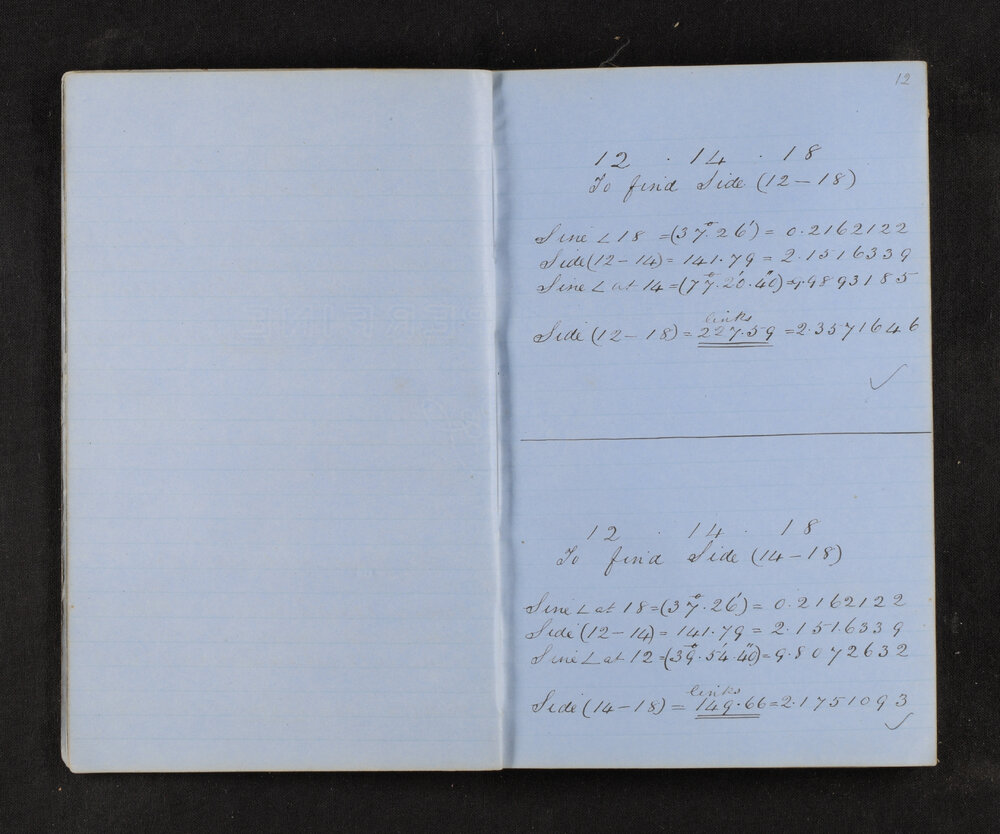 12
12 . 14 . 18
To find Side (12–18)
Sine ∠ 18 = (37°.26′) = 0.2162122
Side (12–14) = 141.79 = 2.1516339
Sine ∠ at 14 = (77°.20′.40″) = 9.9893185
links
Side (12–18) = 227.59 = 2.3571646
12 . 14 . 18
To find Side (14–18)
Sine ∠ at 18 = (37°.26′) = 0.2162122
Side (12–14) = 141.79 = 2.1516339
Sine ∠ at 12 = (39°.54′.40″) = 9.8072632
links
Side (14–18) = 149.66 = 2.1751093